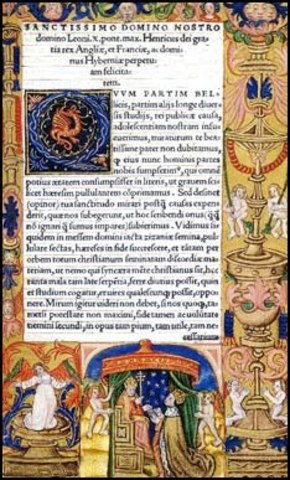 SANCTISSIMO DOMINO NOSTRO
domino Leoni.x.pont.max.Henricus dei gra
tia rex Angliæ, et Franciæ, ac domi
nus Hyberniæ perpetu
am felicita
tem.
VVM PARTIM BEL
licis, partim alijs longe diuer
sis studijs, rei publicæ causa,
adolescentiam nostram insu
euerimus, miraturum te bea
tissime pater non dubitamus,
q̃ eius nunc hominis partes
nobis sumpserim⁹, qui omnē
potius ætatem consumpsisset in literis, ut grauem scili
cet hæresim pullulantem cōprimamus. Sed desinet
(opinor) tua sanctitudo mirari postq̃ causas expen
derit, quæ nos subegerunt, ut hoc scribendi onus (q̃q̃
nō ignari q̃ sumus impares) subiremus. Vidimus si
quidem in messem domini iacta zizaniæ semina, pul
lulare sectas, hæreses in fide succrescere, et tātam per
orbem totum christianum seminatam discordiæ ma
teriam, ut nemo qui syncera mēte christianus sit, hæc
tanta mala tam late serpētia, ferre diutius possit, quin
et studium cogatur, et uires qualescunq; possit, oppo
nere. Mirum igitur uideri non debet, si nos quoq; ta
metsi potestate non maximi, fide tamen ac uolūtate
nemini secundi, in opus tam pium, tam utile, tam ne
cessarium